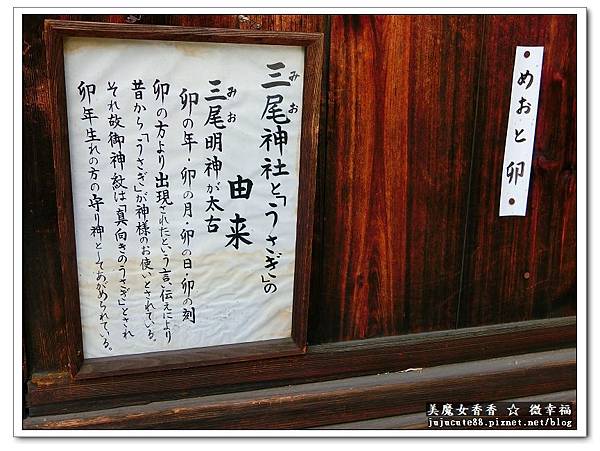 三尾神社と「うさぎ」の
みお
由来
三尾明神が太古
みお
卯の年・卯の月・卯の日・卯の刻
卯の方より出現されたという言い伝えにより
昔から「うさぎ」が神様のお使いとされている。
それ故御神紋は「真向きのうさぎ」とされ
卯年生れの方の守り神としてあがめられている。
めおと卯
美魔女香香 ☆ 微幸福
jujucute88.pixnet.net/blog